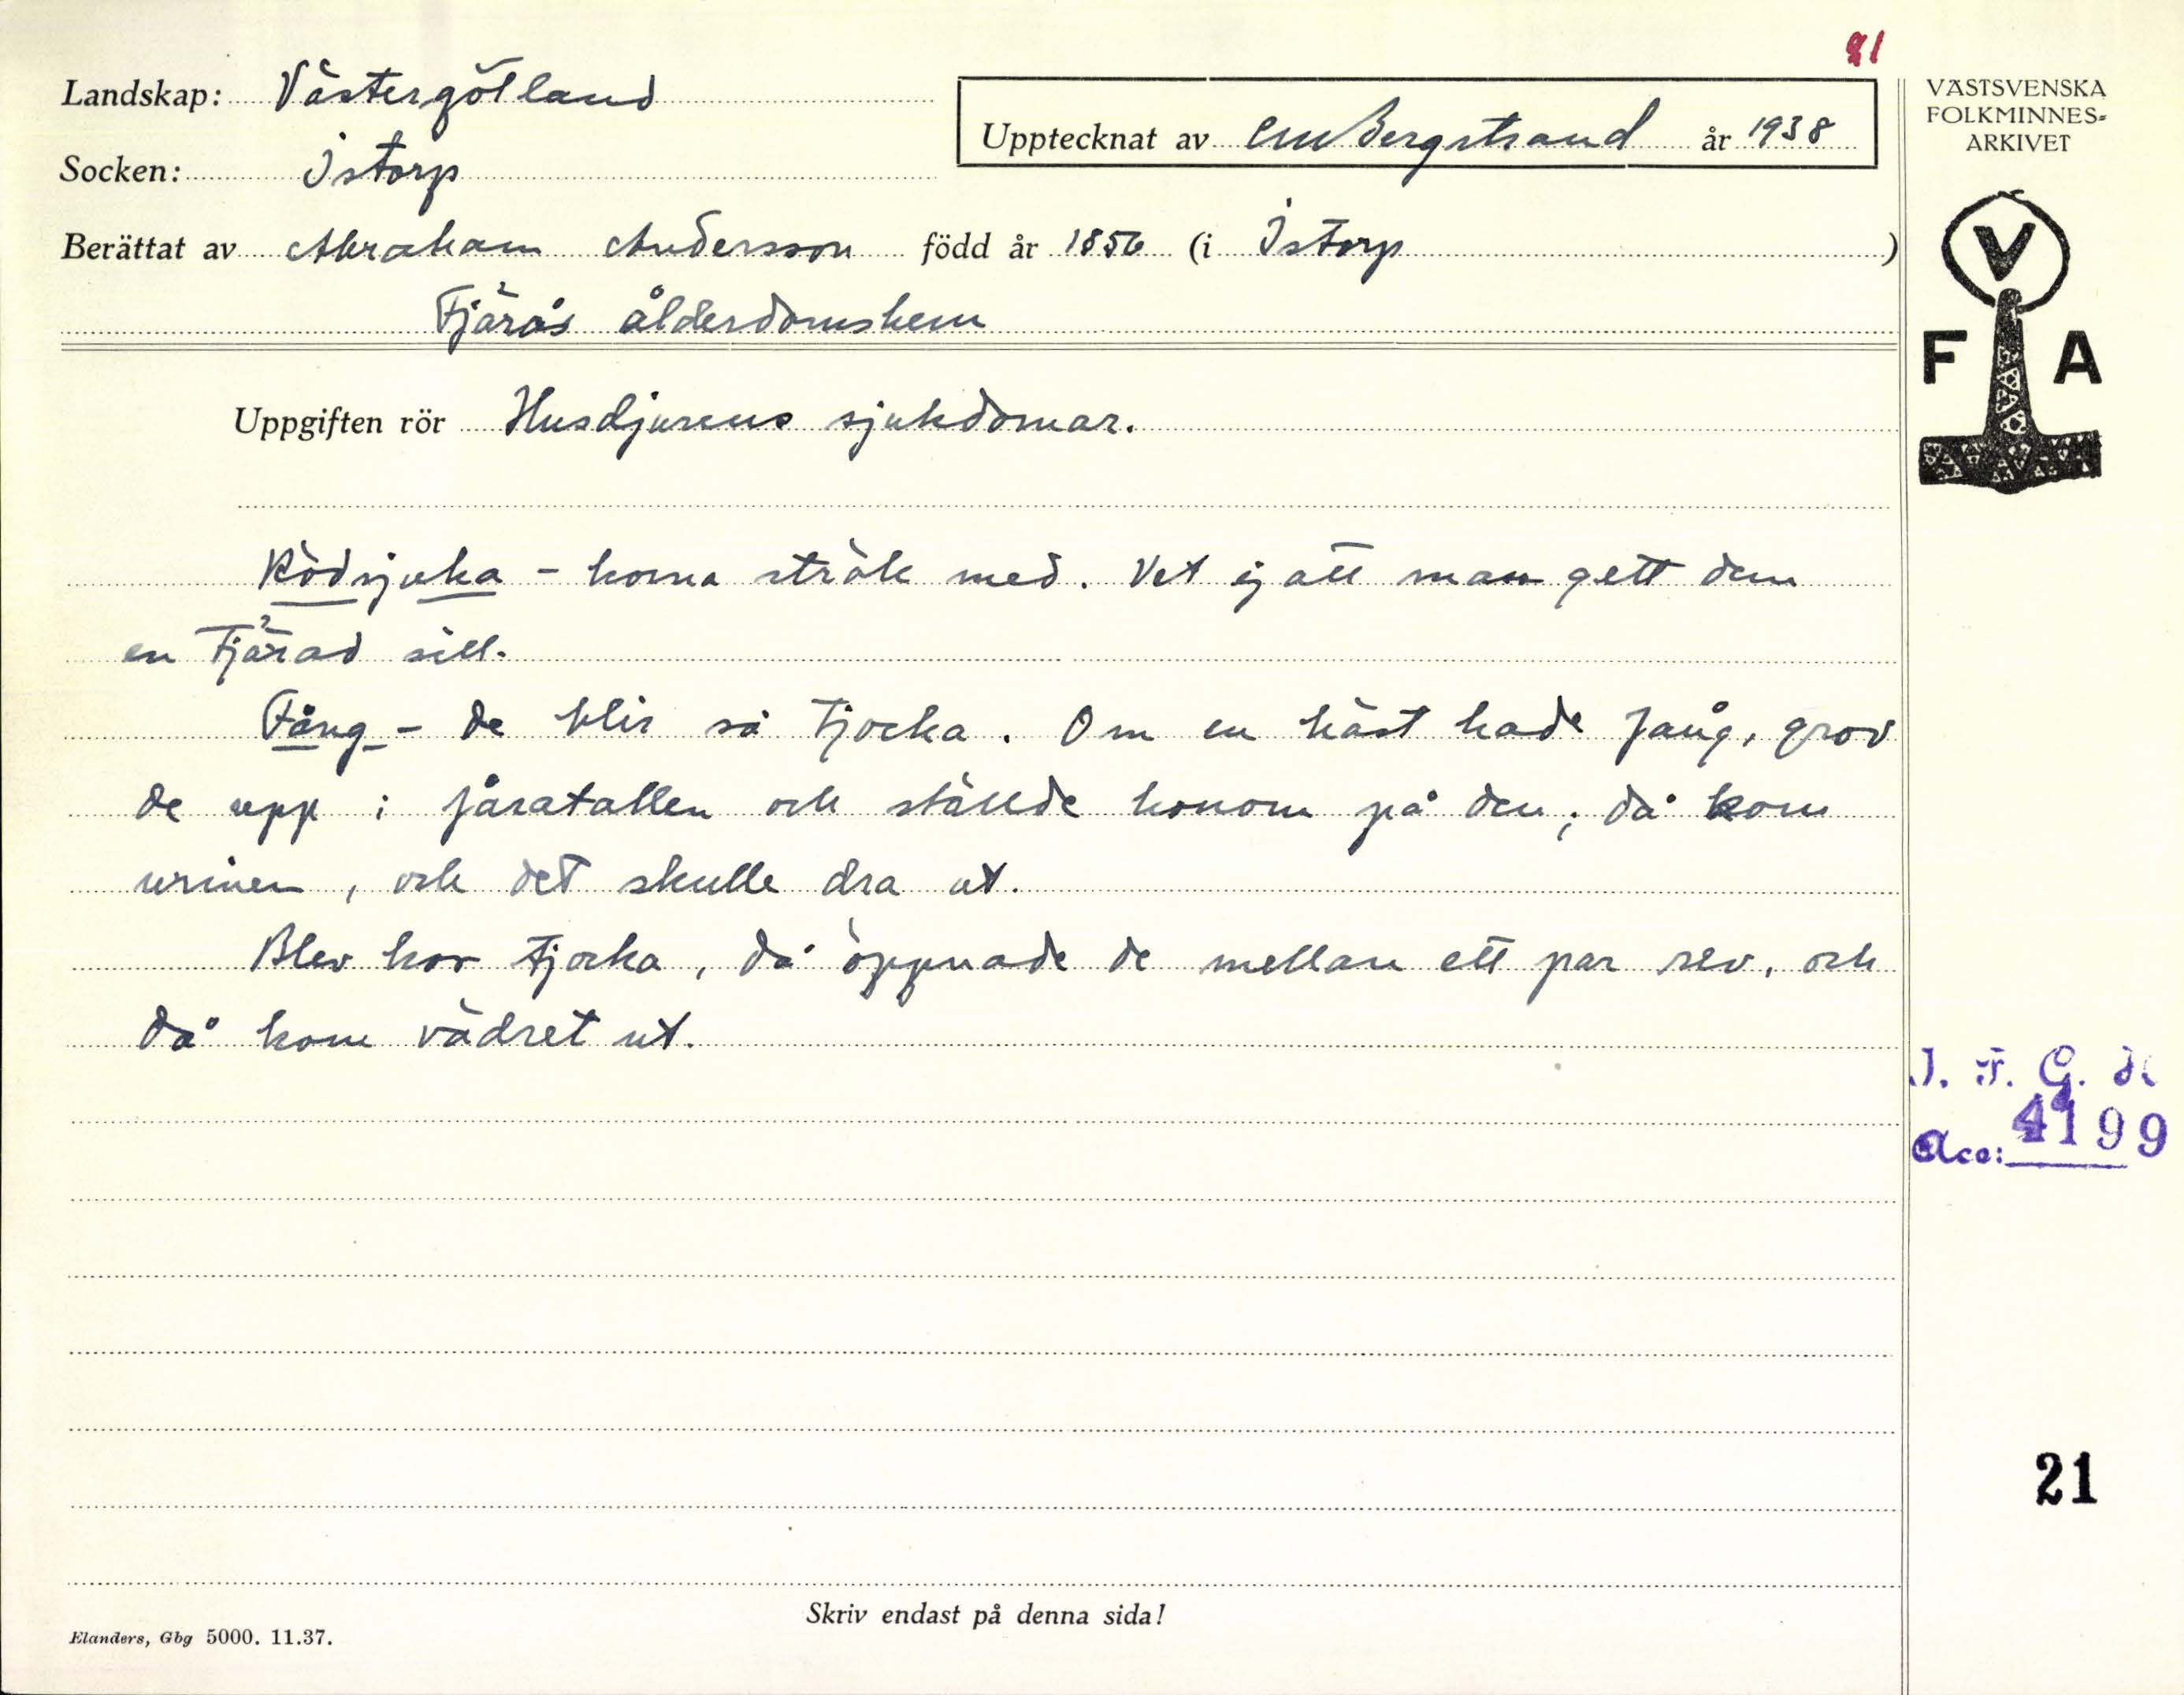 81
Landskap: Västergötland
Upptecknat av CM Bergstrand år 1938
Socken: Istorp
Berättat av Abraham Andersson född år 1856 (i Istorp)
Fjärås ålderdomshem
Uppgiften rör Husdjurens sjukdomar.
Rödsjuka - korna strök med. Vet ej att man gett dem
en tjärad sill.
Fång - de blir så tjocka. Om en häst hade fång, grov
de upp i fåratallen och ställde honom på den; då kom
urinen, och det skulle dra ut.
Blev kor tjocka, då öppnade de mellan ett par rev, och
då kom vädret ut.
VÄSTSVENSKA
FOLKMINNES-
ARKIVET
V
F A
I. F. G. 
Acc: 4199
21
Skriv endast på denna sida!
Elanders, Gbg 5000. 11.37.